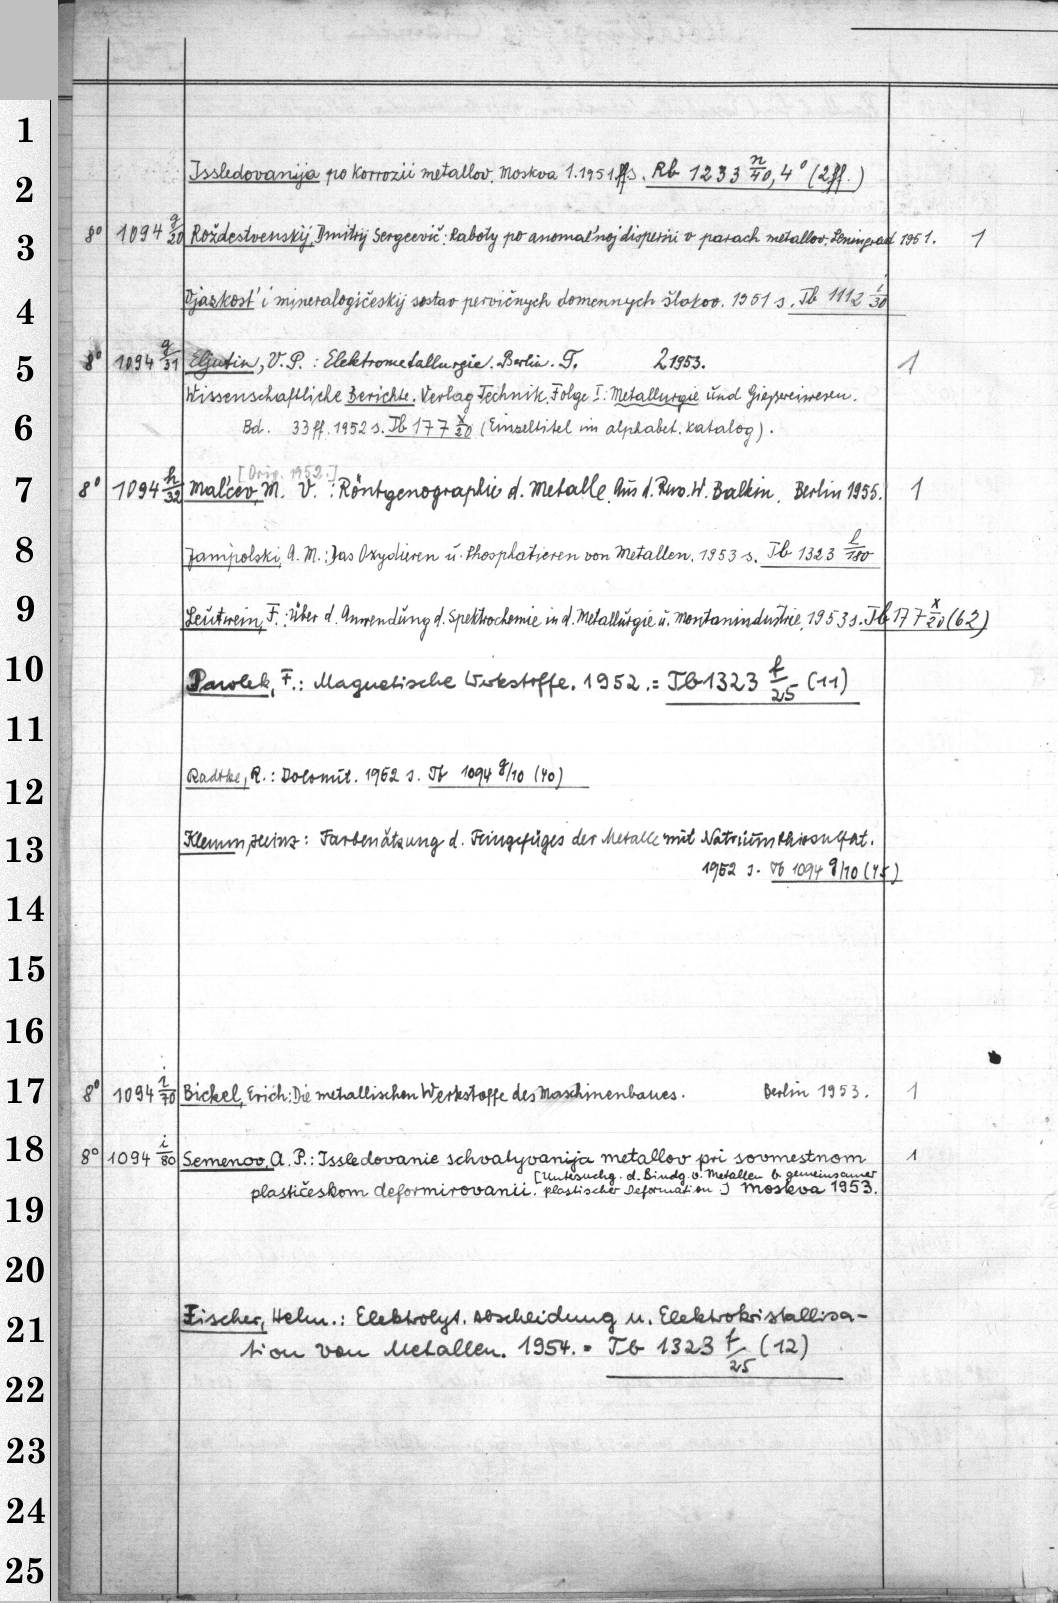 1
2 Issledovanija po korrozii metallov. Moskva 1.1951ff s. Rb 1233 n/40, 4° (2ff.)
3 8° 1094 g/20 Roždestvenskij, Dmitrij Sergeevič: Raboty po anomal'noj dispersii v parach metallov. Leningrad 1951. 1
4 Vjazkost' i mineralogičeskij sostav pervičnych domennych šlakov. 1951 s. Tb 1112 i/30
5 8° 1094 g/31 Eljutin, V. P.: Elektrometallurgie. Berlin. T. 2 1953. 1
Wissenschaftliche Berichte. Verlag Technik. Folge I: Metallurgie und Giessereiwesen.
6 Bd. 33ff. 1952 s. Tb 177 x/20 (Einzeltitel im alphabet. Katalog).
[Orig. 1952.]
7 8° 1094 h/32 Mal'cev, M. V.: Röntgenographie d. Metalle. Aus d. Russ. W. Balkin. Berlin 1955. 1
8 Jampolski, A. M.: Das Oxydieren u. Phosphatieren von Metallen. 1953 s. Tb 1323 l/180
9 Leutwein, F.: Über d. Anwendung d. Spektrochemie in d. Metallurgie u. Montanindustrie. 1953 s. Tb 177 x/20 (62)
10 Pawlek, F.: Magnetische Werkstoffe. 1952. = Tb 1323 f/25 (11)
11
12 Radtke, R.: Dolomit. 1952 s. Tb 1094 g/10 (40)
13 Klemm, Heinz: Farbenätzung d. Feingefüges der Metalle mit Natriumthiosulfat.
1952 s. Tb 1094 g/10 (45)
14
15
16
17 8° 1094 i/70 Bickel, Erich: Die metallischen Werkstoffe des Maschinenbaues. Berlin 1953. 1
18 8° 1094 i/80 Semenov, A. P.: Issledovanie schvatyvanija metallov pri sovmestnom 1
[Untersuchg. d. Bindg. v. Metallen b. gemeinsamer
plastičeskom deformirovanii. plastischer Deformation] Moskva 1953.
19
20
21 Fischer, Helm.: Elektrolyt. Abscheidung u. Elektrokristallisa-
tion von Metallen. 1954. = Tb 1323 f/25 (12)
22
23
24
25